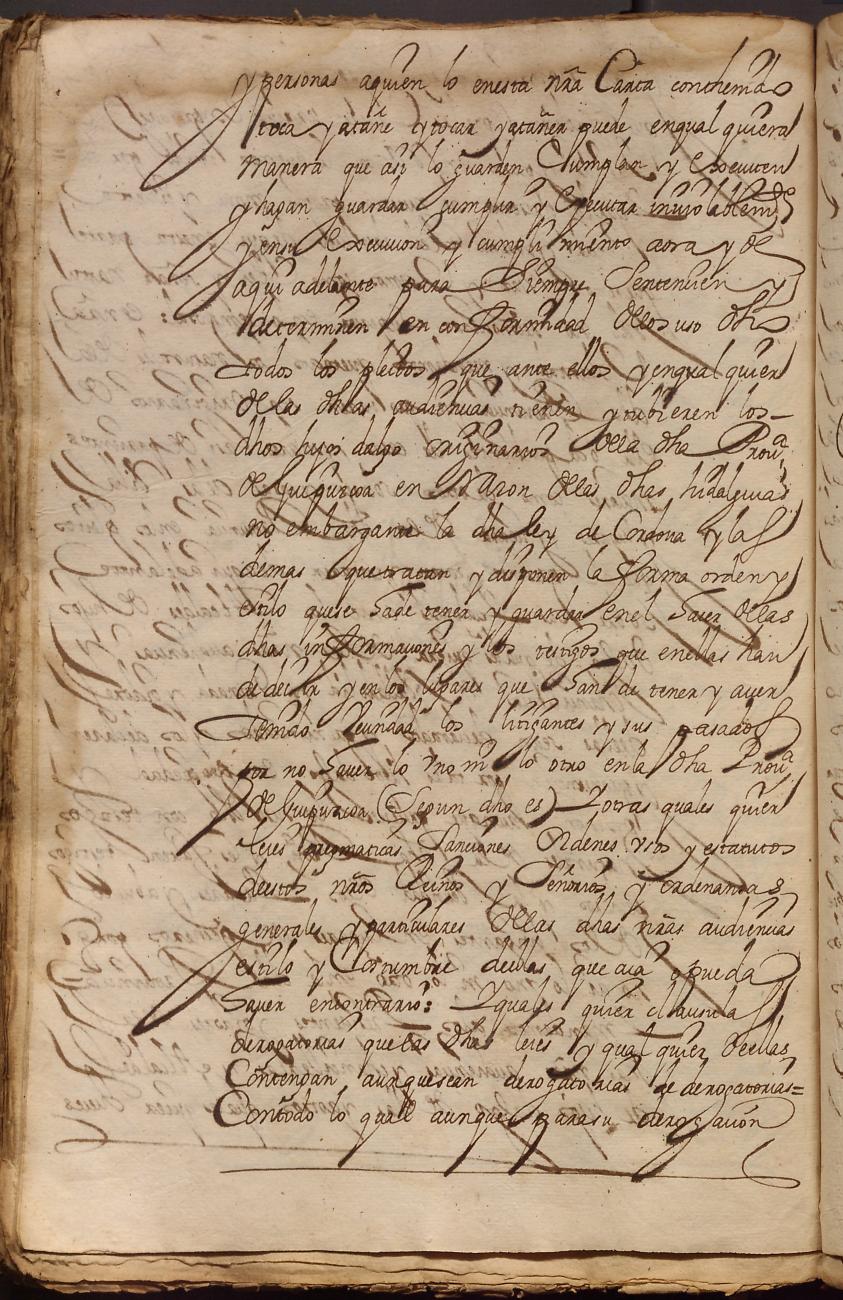 y personas aquien lo enesta nrã Carta contthenido
toca y atañe y tocar y atañer puede enqual quiera
manera que asi lo guarden Cumplan y Executen
y hagan guardar cumplir y Executar inviolablemte
y ensu Execucion y cumplimiento aora y de
aqui adelante para Siempre Sentencien y
determinen en conformidad delos uso dhos
todos los pleitos que ante ellos y enqual quier
de las dhas audiencias tienen y tubieren los
dhos hijos dalgo originarios dela dha Prouª
de Guipuzcoa en Razon delas dhas hidalguias
no embargante la dha ley de Cordoua y las
demas que tratan y disponen la forma orden y
estilo quese hade tener y guardar enel haver delas
dhas informaciones y los testigos que enellas han
de decir y en los lugares que han de tener y aver
tenido vecindad los litigantes y sus pasados
por no haver lo vno ni lo otro enla dha Prouª
de Guipuzcoa (Segun dho es) Y otras quales quier
leies pregmaticas Sanciones Ordenes vsos y estatutos
destos nrõs Reinos y Señorios y ordenanzas
generales y particulares delas dhas nrãs audiencias
estilo y Costumbre dellas que aia o pueda
haver encontrario: Y quales quier clausulas
derogatorias que las dhas leies y qual quier deellas
Contengan aunque sean derogatorias de derogatorias=
Con todo lo qual aunque para su derogacion